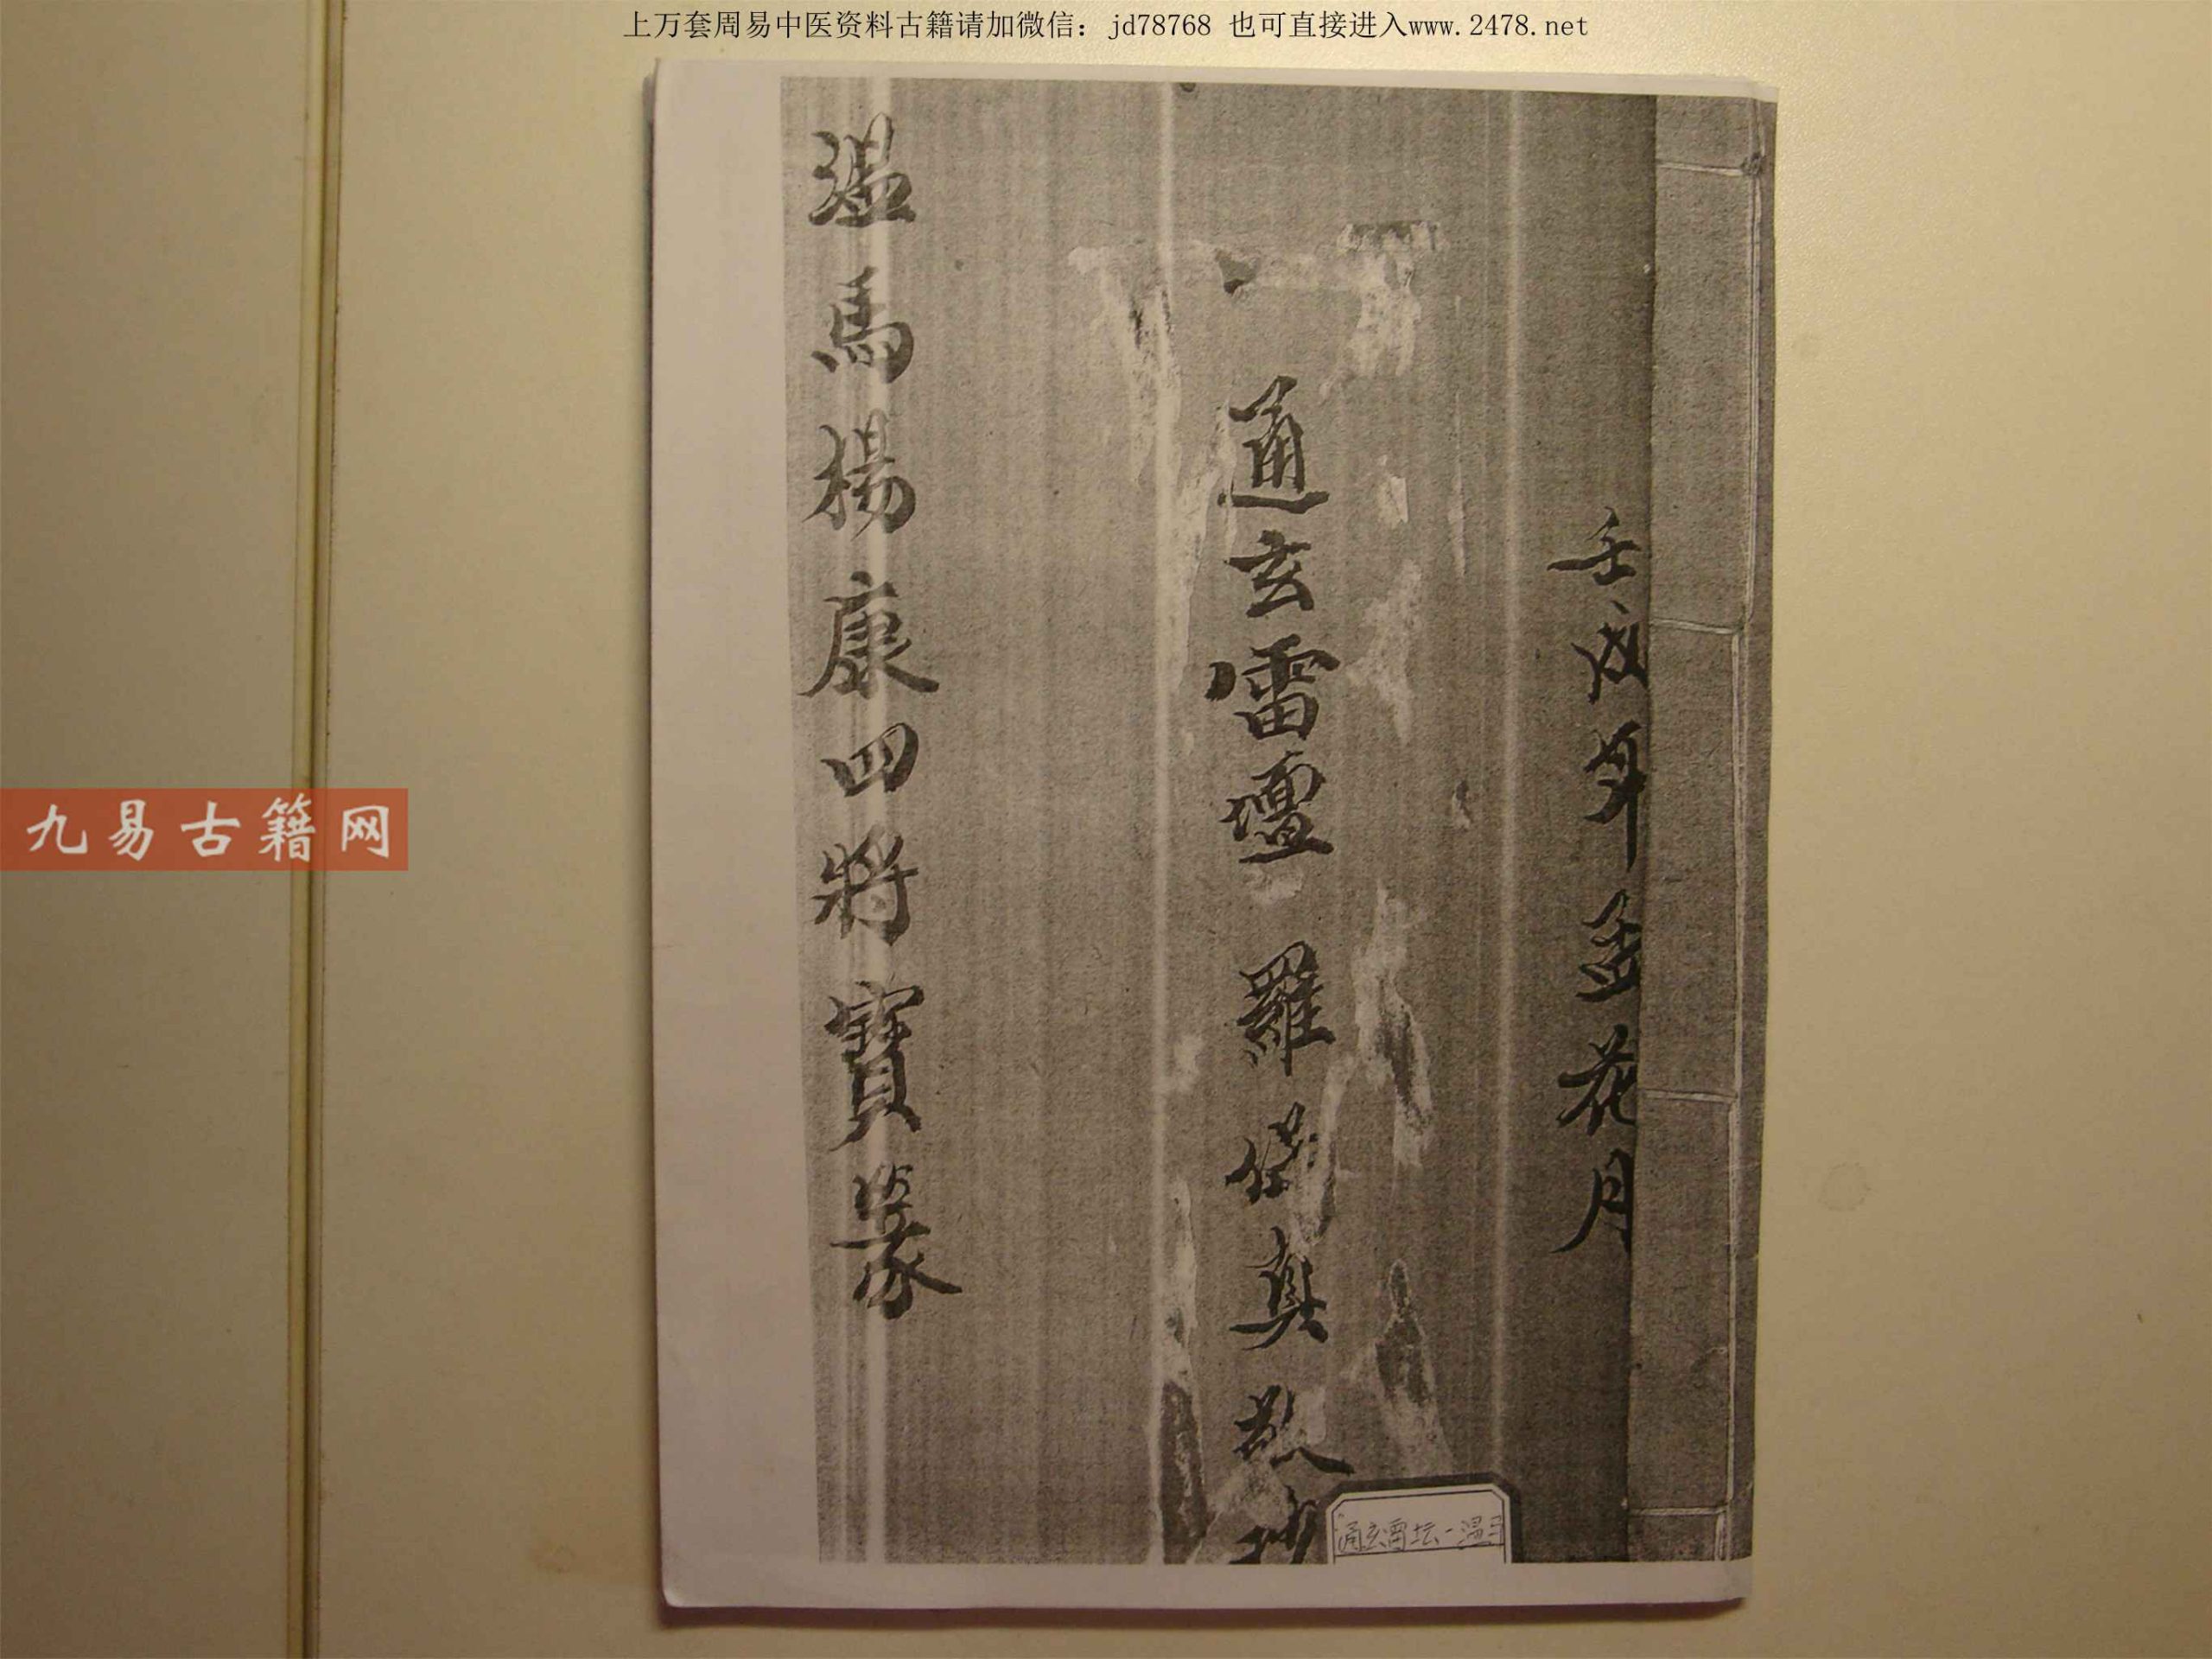 上万套周易中医资料古籍请加微信：jd78768 也可直接进入www.2478.net
壬戌年孟花月
通玄雷壇 羅 真敬抄
溫馬楊康四將寶篆
九易古籍网
通玄雷坛一温